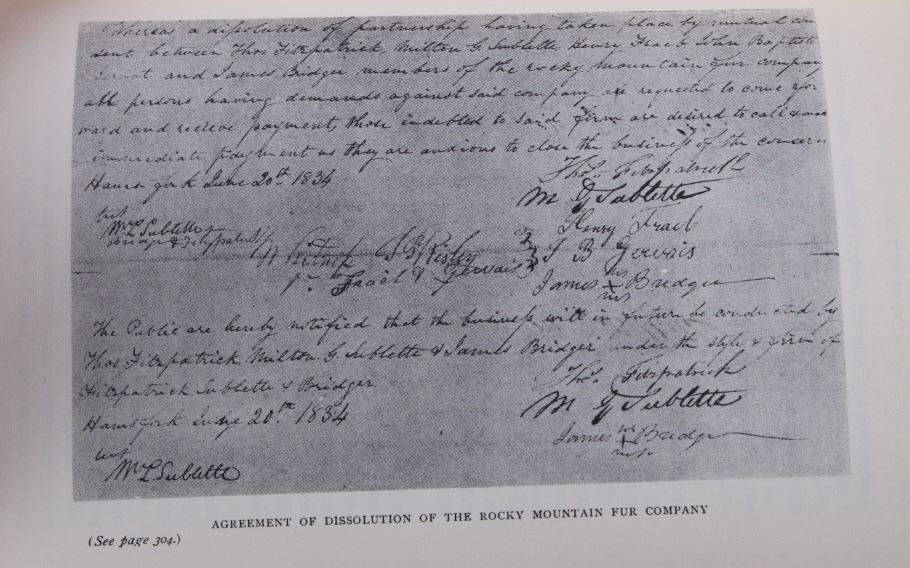 Whereas a disolution of partnership having taken place by mutual con
sent between Thos Fitzpatrick Milton G Sublette Henry Fraeb John Baptste
Gervat and James Bridger members of the rocky mountain fur company
all persons having demands against said company are requested to come for
ward and recieve payment, those indebted to said firm are desired to call & make
immediate payment as they are anxious to close the business of the concern
Hams fork June 20th 1834
Thos Fitzpatrick
M G Sublette
wit
Wm L Sublette
Henry Fraeb
Bridge & Fitzpatrick
Witness J P Risley
J B Gervais
for Fraeb & Gervais
his
James X Bridger
mrk
The Public are hereby notified that the business will in future be conducted by
Thos Fitzpatrick, Milton G. Sublette & James Bridger under the style & firm of
Fitzpatrick Sublette & Bridger
Hams fork June 20th 1834
Thos Fitzpatrick
M G Sublette
wit
his
James X Bridger
mrk
Wm L Sublette
AGREEMENT OF DISSOLUTION OF THE ROCKY MOUNTAIN FUR COMPANY
(See page 304.)